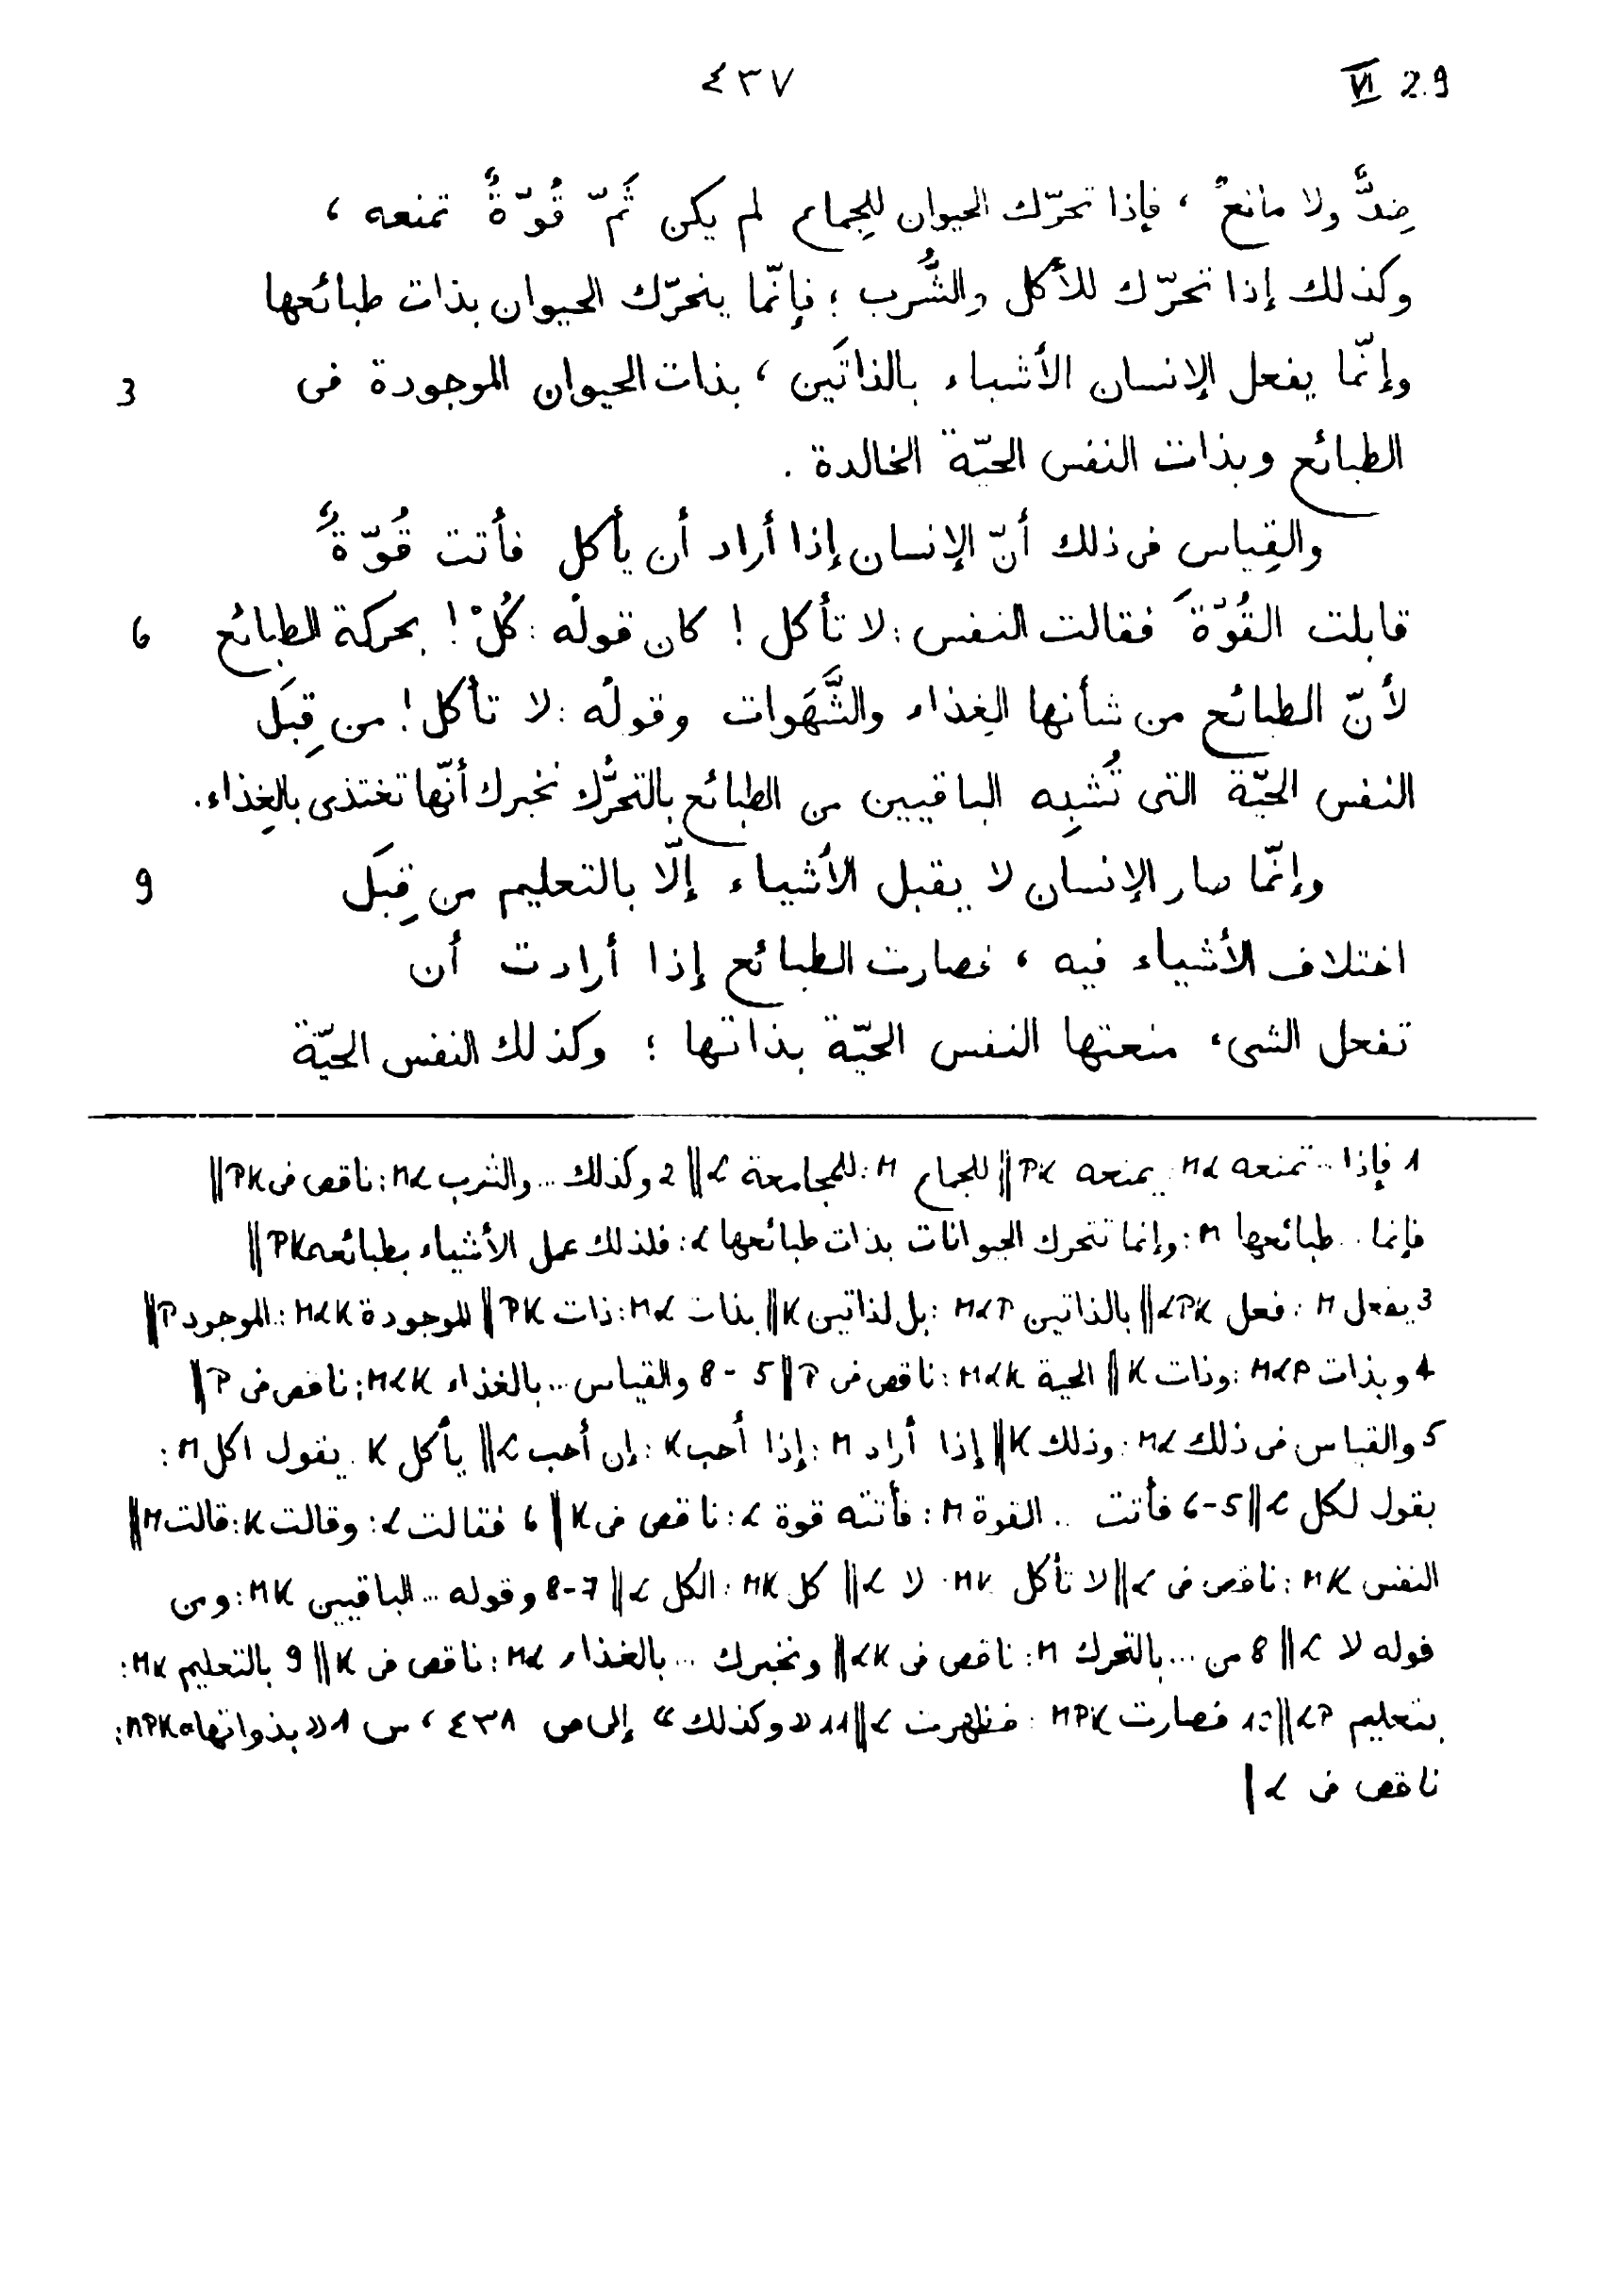 ٤٣٧
VI 2.9
ضِدٌّ ولا مانعٌ ، فإذا تحرّك الحيوان للجِماع لم يكن ثَمّ قُوّةٌ تمنعه ،
وكذلك إذا تحرّك للأكل والشُّرب ؛ فإنّما يتحرّك الحيوان بذات طبائعها
وإنّما يفعل الإنسان الأشياء بالذاتَين ، بذات الحيوان الموجودة فى
3
الطبائع وبذات النفس الحيّة الخالدة .
والقِياس فى ذلك أنّ الإنسان إذا أراد أن يأكل فأتت قُوّةٌ
قابلت القُوّةَ فقالت النفس : لا تأكل ! كان قولُه : كُلْ ! بحركة الطبائع
6
لأنّ الطبائع من شأنها الغِذاء والشَّهَوات وقولُه : لا تأكل ! من قِبَل
النفس الحيّة التى تُشبِه الباقيين من الطبائع بالتحرُّك نخبرك أنّها تغتذى بالغِذاء .
وإنّما صار الإنسان لا يقبل الأشياء إلّا بالتعليم من قِبَل
9
اختلاف الأشياء فيه ، فصارت الطبائع إذا أرادت أن
تفعل الشىء منعتها النفس الحيّة بذاتها ؛ وكذلك النفس الحيّة
1 فإذا .. تمنعه ML : يمنعه PK || للجماع M : للمجامعة L || 2 وكذلك ... والشرب ML : ناقص فى PK ||
فإنما .. طبائعها M : وإنما تتحرك الحيوانات بذات طبائعها L : فلذلك عمل الأشياء بطبائعه PK ||
3 يفعل M : فعل LPK || بالذاتين MLP : بل لذاتين K || بذات ML : ذات PK || الموجودة MLK : الموجود P ||
4 وبذات MLP : وذات K || الحية MLK : ناقص فى P || 5 - 8 والقياس ... بالغذاء MLK : ناقص فى P ||
5 والقياس فى ذلك ML : وذلك K || إذا أراد M : إذا أحب K : إن أحب L || يأكل K : يقول اكل M :
بقول لكل L || 5-6 فأتت .. القوة M : فأتته قوة L : ناقص فى K || 6 فقالت L : وقالت K : قالت M ||
النفس MK : ناقص فى L || لا تأكل MK : لا L || كل MK : الكل L || 7-8 وقوله ... الباقيين MK : ومن
قوله لا L || 8 من ... بالتحرك M : ناقص فى LK || ونخبرك ... بالغذاء ML : ناقص فى K || 9 بالتعليم MK :
بتعليم LP || 10 فصارت MPK : فظهرت L || 11 « وكذلك » إلى ص ٤٣٨ ، س 1 « بذواتها » MPK :
ناقص فى L |